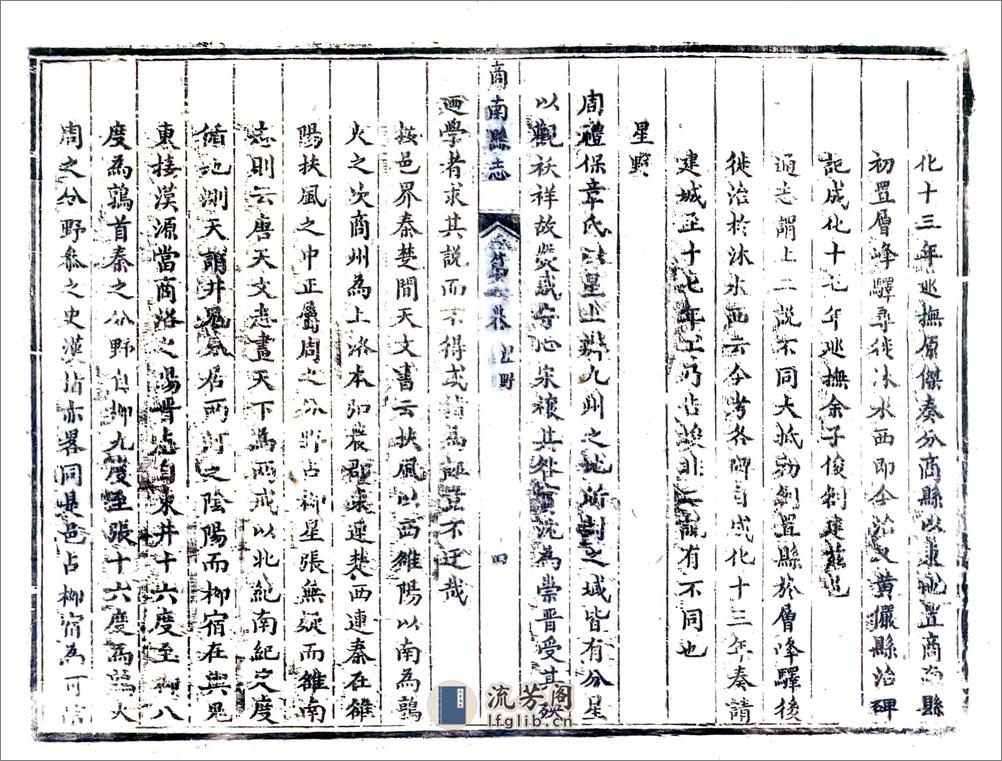 化十三年巡撫原傑奏分商縣以東地置商南縣
初置層峰驛尋徙沐水西即今治又黃儼縣治碑
記成化十七年巡撫余子俊剏建茲邑
通志謂上二說不同大抵初剏置縣於層峰驛後
徙治於沐水西云今考各碑自成化十三年奏請
建城至十七年工乃告竣非二說有不同也
星野
周禮保章氏以星土辨九州之地所封之域皆有分星
以觀祅祥故熒惑守心宋禳其咎實沈為崇晋受其殃
商南縣志
卷 星野
四
迺學者求其說而不得或諸為誣豈不迂哉
按邑界秦楚間天文書云扶風以西雒陽以南為鶉
火之次商州為上洛本弘農郡東連楚西連秦在雒
陽扶風之中正屬周之分野占柳星張無疑而雒南
志則云唐天文志畫天下為兩戒以北紀南紀之度
循地測天謂井鬼 居兩河之陰陽而柳宿在輿鬼
東接漢源當商洛之陽晋志自東井十六度至柳八
度為鶉首秦之分野自柳九度至張十六度為鶉火
周之分野叅之史漢諸 亦畧同是邑占柳宿為可信
流芳阁
lfglib.cn